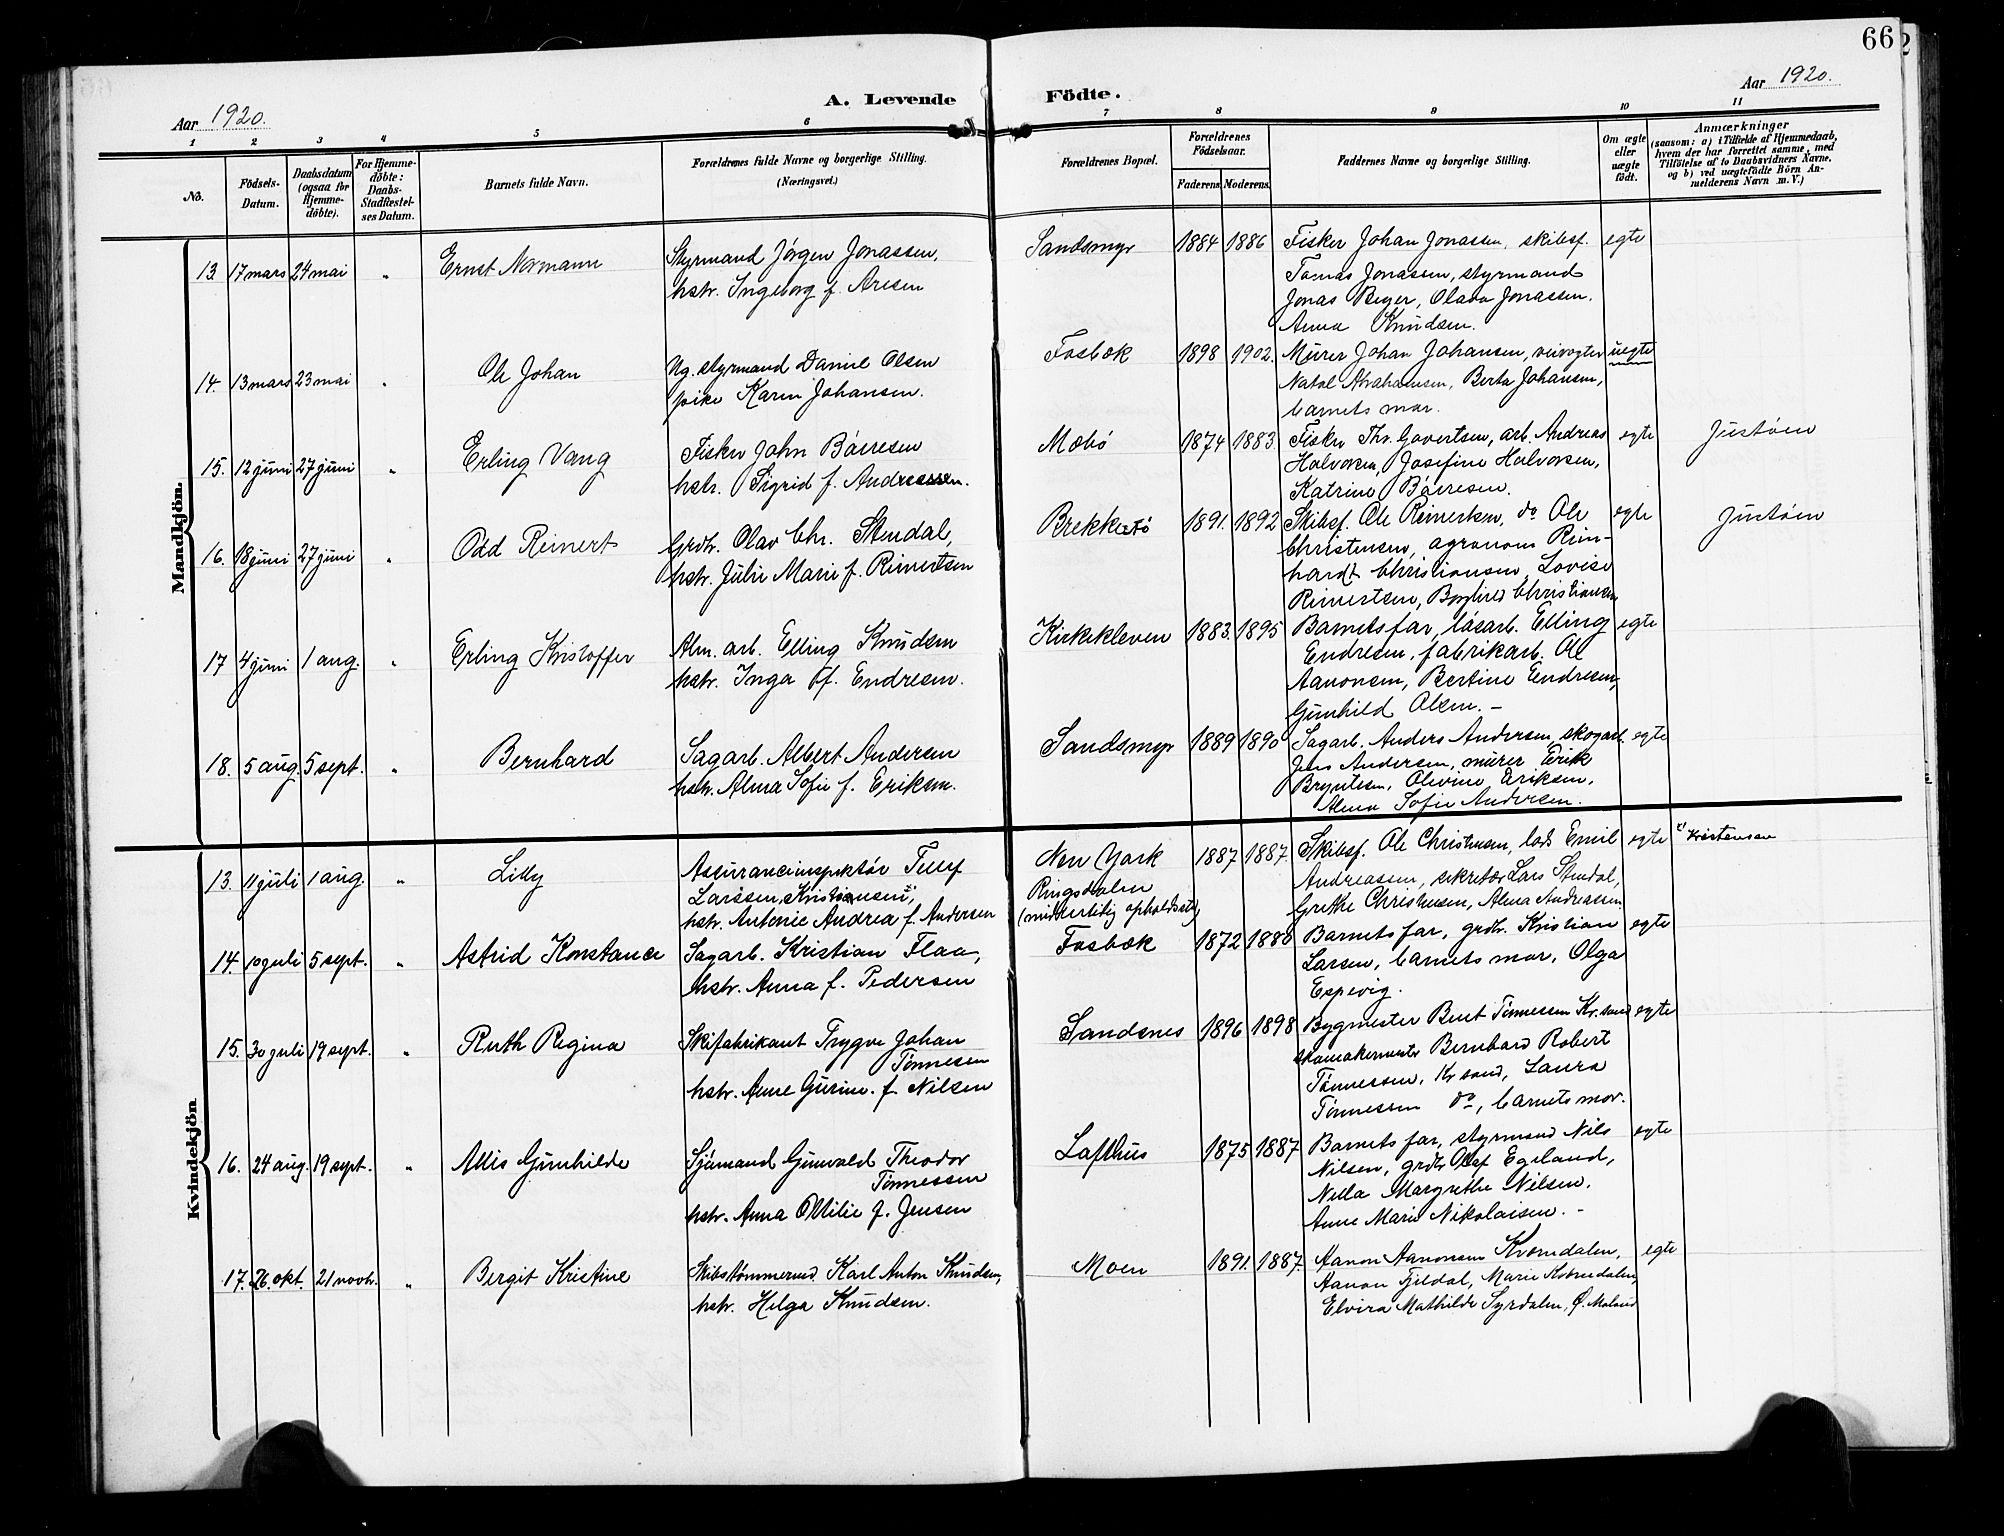 66
Aar 1920.
A. Levende
Födte.
Aar 1920.
1 2 3 4 5 6 7 8 9 10 11
No.
Födsels-
Datum.
Daabsdatum
(ogsaa for
Hjemme-
döbte).
For Hjemme-
döbte:
Daabs-
Stadfæstel-
ses Datum.
Barnets fulde Navn.
Forældrenes fulde Navne og borgerlige Stilling.
(Næringsvei.)
Forældrenes Bopæl.
Forældrenes
Födselsaar.
Faderens. Moderens.
Faddernes Navne og borgerlige Stilling.
Om ægte
eller
uægte
födt.
Anmærkninger
(saasom: a) i Tilfælde af Hjemmedaab,
hvem der har forrettet samme, med
Tilföielse af to Daabsvidners Navne,
og b) ved uægtefödte Börn An-
melderens Navn m. V.)
Mandkjön.
13. 17 mars 24 mai „ Ernst Normann
Styrmand Jørgen Jonassen,
hstr. Ingeborg f. Aresen
Sandsmyr 1884 1886
Fisker Johan Jonassen, skibsf.
Tomas Jonassen, styrmand
Jonas Beyer, Olava Jonassen.
Anna Knudsen.
egte
14. 13 mars 23 mai „ Ole Johan
Ug. styrmand Daniel Olsen
pike Karen Johansen.
Fosbæk 1898 1902.
Murer Johan Johansen, veivogter
Natal Abrahamsen, Berta Johansen,
barnets mor.
uegte
15. 12 juni 27 juni „ Erling Vang
Fisker John Børresen
hstr. Sigrid f. Andreassen.
Mæbø 1874 1883.
Fisker Thv. Govertsen, arb. Andreas
Halvorsen, Josefine Halvorsen,
Katrine Børresen.
egte
Justøen
16. 18 juni 27 juni „ Odd Reinert
Grdr. Olav Chr. Stendal,
hstr. Julie Marie f. Reinertsen
Brekkestø 1891. 1892
Skibsf. Ole Reinertsen, do Ole
Christensen, agronom Rein-
hardt Christiansen, Lovise
Reinertsen, Borghild Christiansen
egte
Justøen
17 4 juni 1 aug. „ Erling Kristoffer
Alm. arb. Elling Knudsen
hstr. Inga f. Endresen.
Kirkekleven 1883. 1895
Barnets far, løsarb. Elling
Endresen, fabrikarb. Ole
Aanonsen, Bertine Endresen,
Gunhild Olsen. -
egte
18. 5 aug. 5 sept. „ Bernhard
Sagarb. Albert Andersen
hstr. Alma Sofie f. Eriksen.
Sandsmyr 1889 1890
Sagarb. Anders Andersen, skogarb.
Jens Andersen, murer Erik
Bryntesen, Olivine Eriksen,
Alma Sofie Andersen.
egte
Kvindekjön.
13. 11 juli 1 aug. „ Lilly
Assuranceinspektør Tellef
Larssen, Kristiansen,
hstr. Antonie Andrea f. Andersen
New York
Ringsdalen
(midlertidig opholdssted)
1887 1887.
Skibsf. Ole Christensen, lods Emil
Andreassen, sekretær Lars Stendal,
Grethe Christensen, Alma Andreassen
egte
Kristensen
14. 10 juli 5 sept. „ Astrid Konstance
Sagarb. Kristian Flaa,
hstr. Anna f. Pedersen
Fosbæk 1872 1880
Barnets far, grdr. Kristian
Larsen, barnets mor, Olga
Espevig.
egte
15. 30 juli 19 sept. „ Ruth Regina
Skifabrikant Trygve Johan
Tønnesen
hstr. Anne Gurine f. Nilsen
Sandsnes 1896 1898
Bygmester Bent Tønnessen Kr.sand
skomakermester Bernhard Robert
Tønnessen, Kr sand, Laura
Tønnessen do, barnets mor.
egte
16. 24 aug. 19 sept. „ Allis Gunhilde
Sjømand Gunvald Theodor
Tønnessen
hstr. Anna Ottilie f. Jensen
Lofthus 1875 1887
Barnets far, styrmand Nils
Nilsen, grdr Olaf Egeland,
Nella Margrethe Nilsen.
Anne Marie Nikolaisen. -
egte
17. 26. okt. 21 novb. „ Bergit Kristine
Skibstømmermd. Karl Anton Knudsen,
hstr. Helga Knudsen.
Moen 1891. 1887.
Aanon Aanonsen Kværndalen,
Aanon Fjeldal, Marie Kværndalen
Elvira Mathilde Syrdalen, Ø. Moland
egte